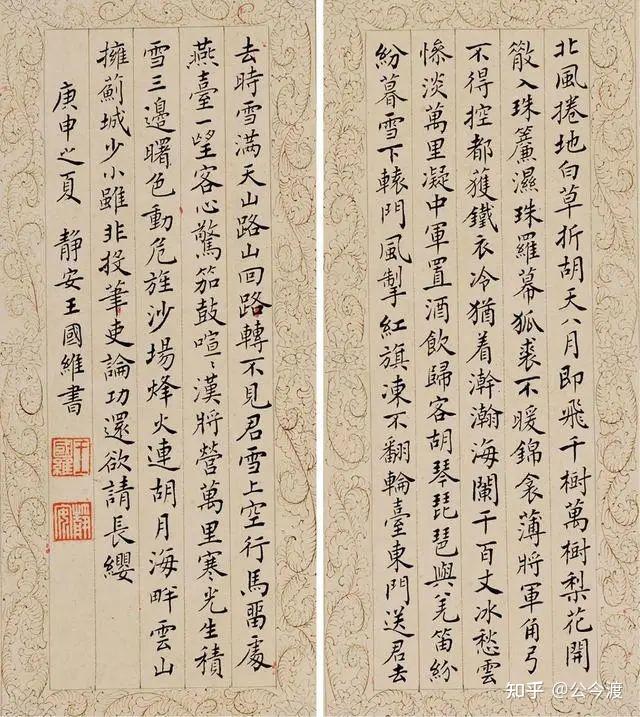 北風捲地白草折胡天八月即飛千樹萬樹梨花開
散入珠簾濕珠羅幕狐裘不暖錦衾薄將軍角弓
不得控都獲鐵衣冷猶着澣瀚海闌干百丈冰愁雲
慘淡萬里凝中軍置酒飲歸客胡琴琵琶與羌笛紛
紛暮雪下轅門風掣紅旗凍不翻輪臺東門送君去
去時雪满天山路山回路轉不見君雪上空行馬畱處
燕臺一望客心驚笳鼓喧〻漢將營萬里寒光生積
雪三邊曙色動危旌沙場烽火連胡月海畔雲山
擁薊城少小雖非投筆吏論功還欲請長纓
庚申之夏 靜安王國維書
王國維
靜安
知乎 @公今渡